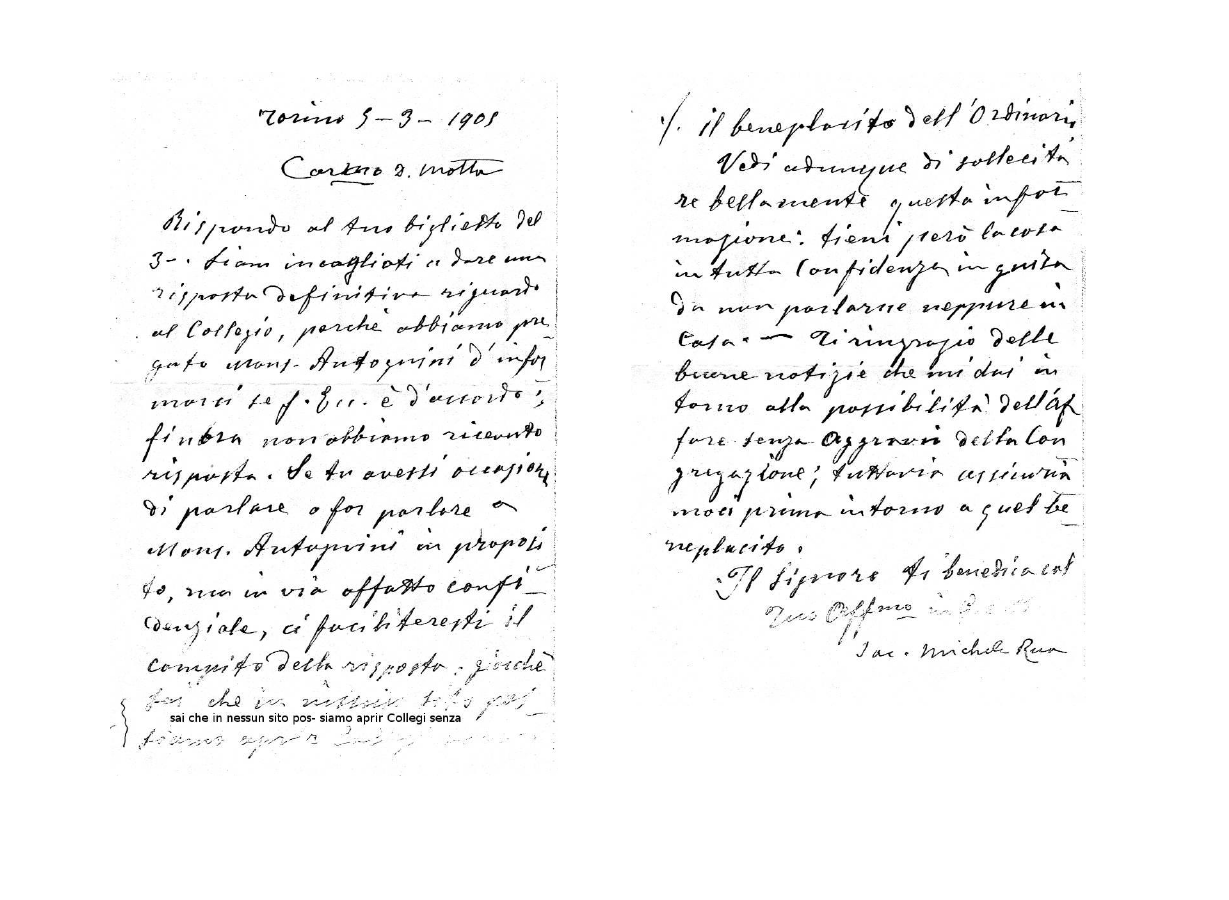 Torino 5-3-1905
Carissmo D. Motta
Rispondo al tuo biglietto del
3-. Siam incagliati a dare una
risposta definitiva riguardo
al Collegio, perchè abbiamo pre
gato Mons. Antognini d'infor
marci se S. Ecc. è d'accordo;
finora non abbiamo ricevuto
risposta. Se tu avessi occasione
di parlare o far parlare a
Mons. Antognini in proposi
to, ma in via affatto confi-
denziale, ci faciliteresti il
compito della risposta. giacchè
sai che in nessun sito pos-
sai che in nessun sito pos- siamo aprir Collegi senza
siamo aprir Collegi senza
./. il beneplacito dell'Ordinario
Vedi adunque di sollecita
re bellamente questa infor_
mazione: tieni però la cosa
in tutta Confidenza in guisa
da non parlarne neppure in
Casa. — Ti ringrazio delle
buone notizie che mi dai in
torno alla possibilità dell'Af
fare senza Aggravii della Con
gregazione; tuttavia assicuria
moci prima intorno a quel be_
neplacito.
Il Signore ti benedica col
Tuo Affmo in
Sac. Michele Rua